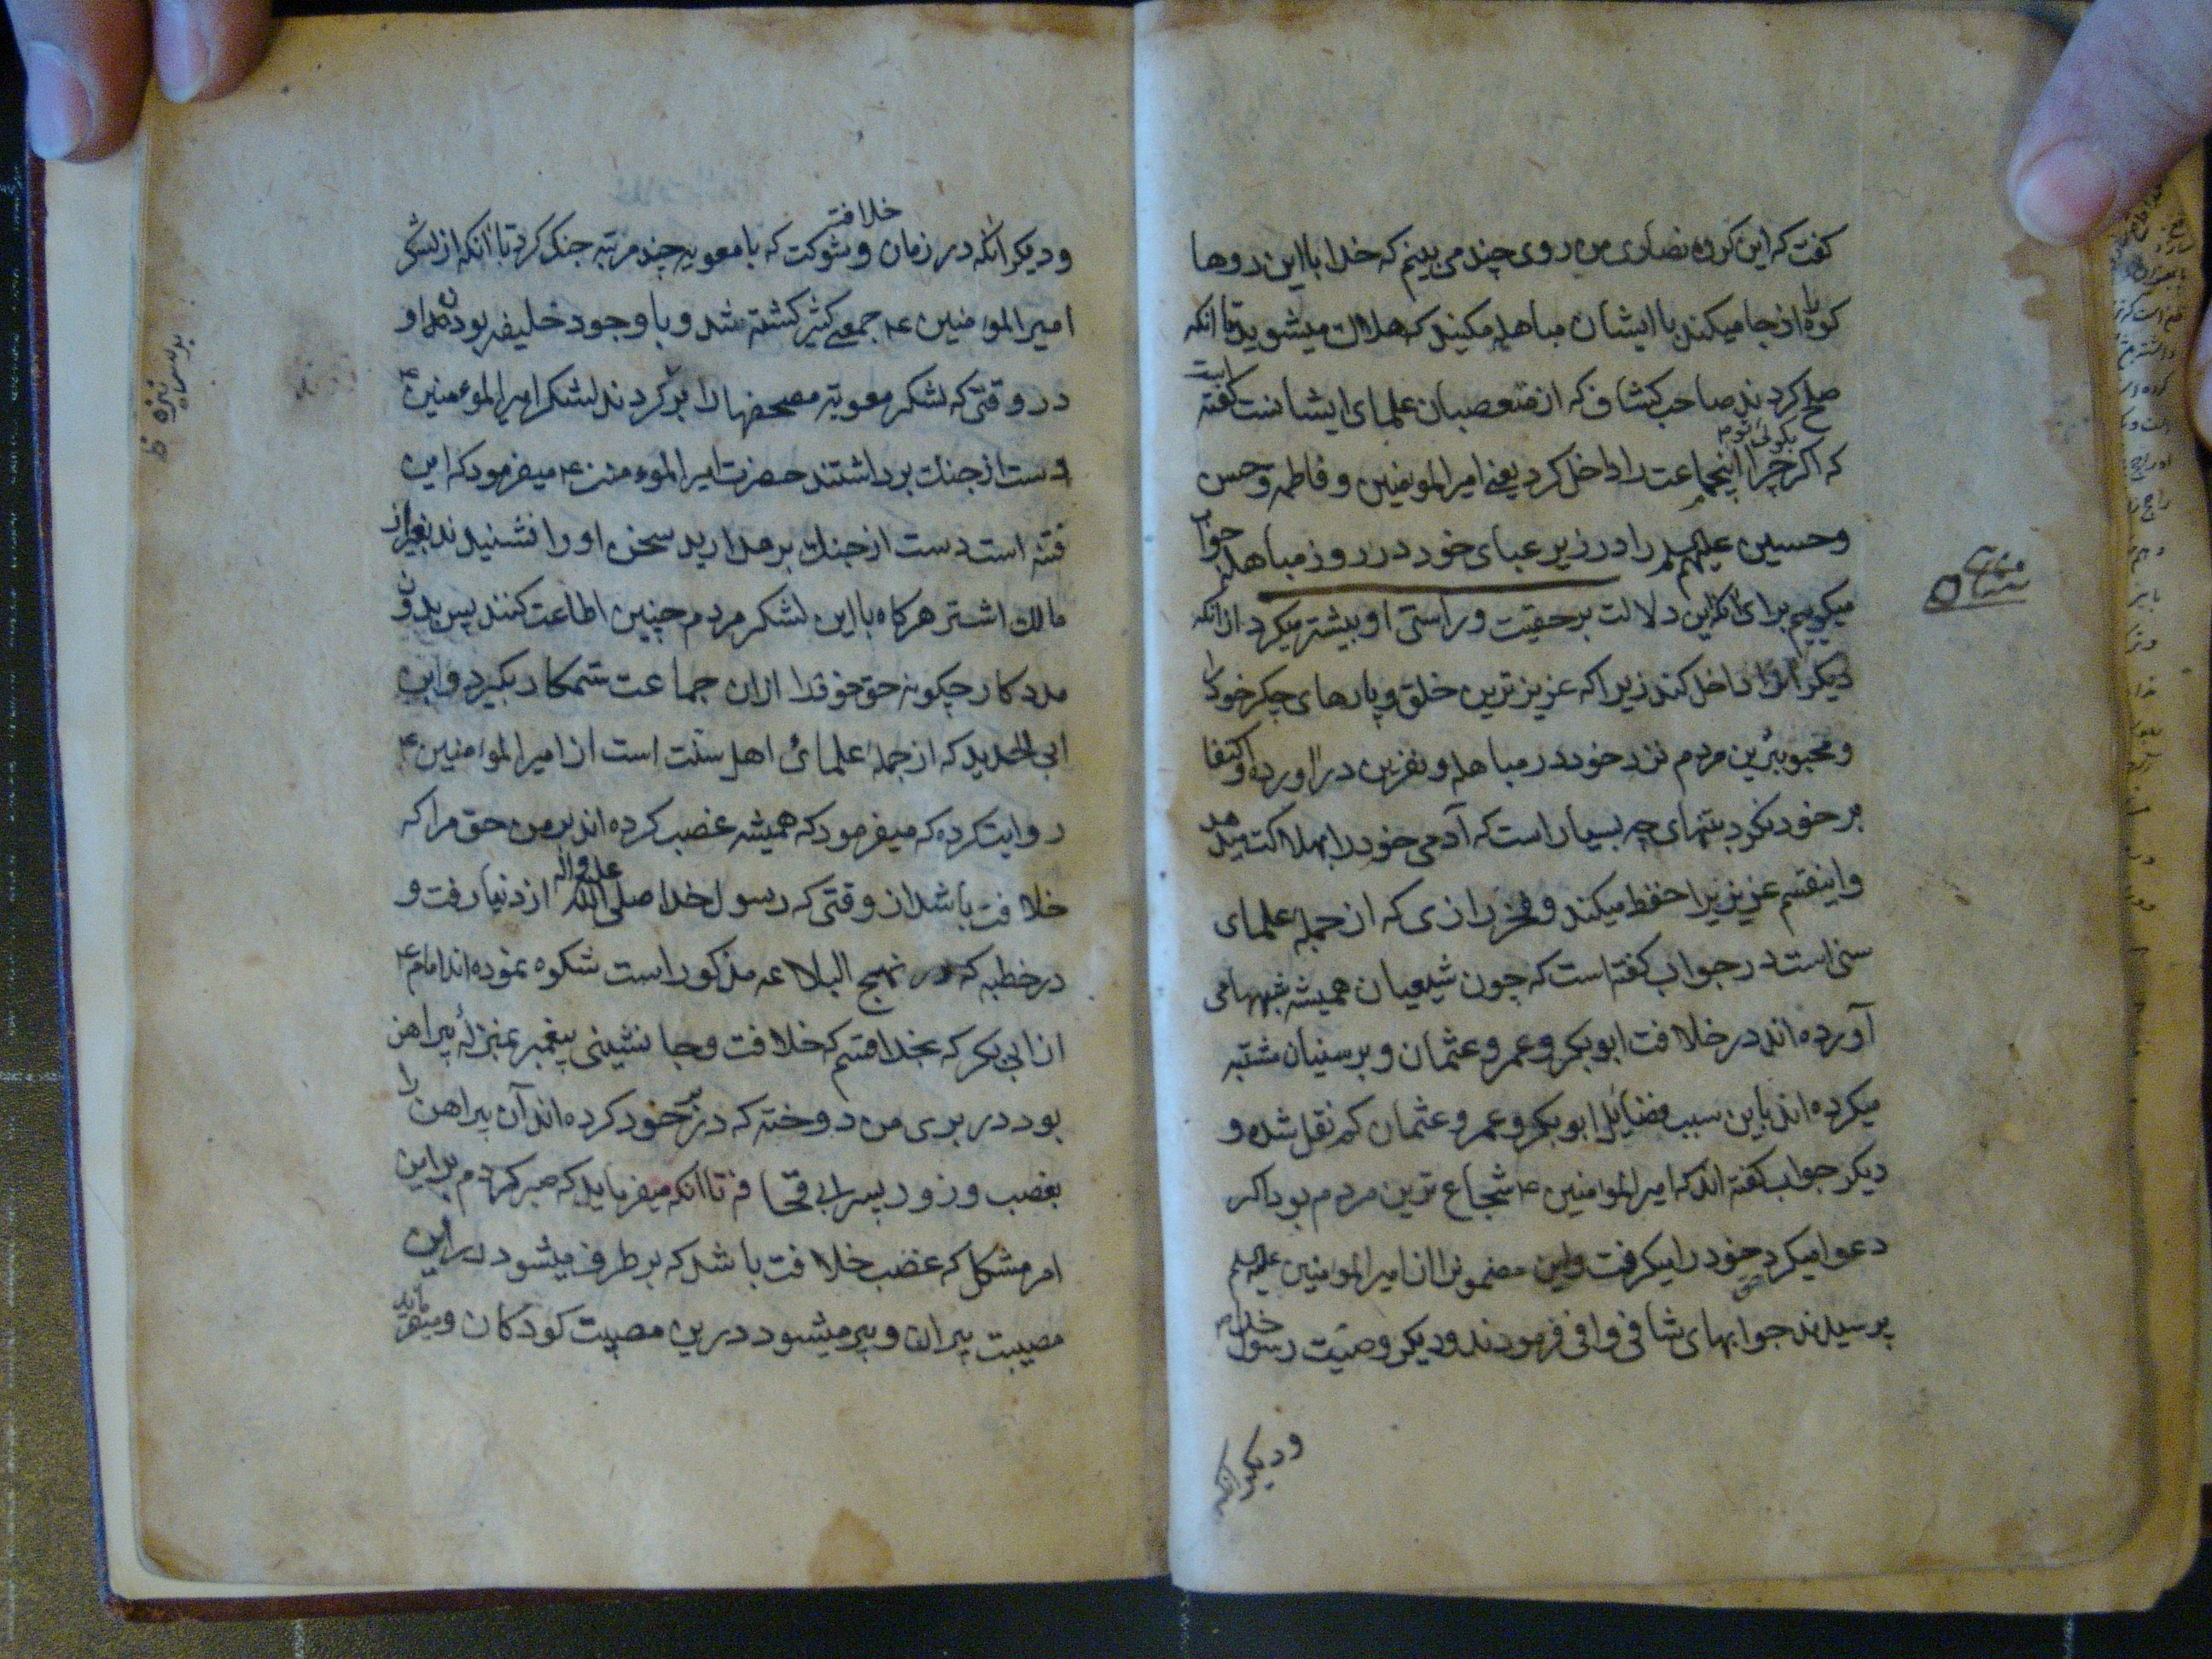 گفت که این کروه نصاری من روی چند می بینم که خدا با این روها
کوه را از جا میکند با ایشان مباهله مکنید که هلاک میشوید تا انکه
صلح کردند صاحب کشاف که از متعصبان علمای ایشانست گفته است
که اگر بکوئی توم چرا اینجماعت را داخل کرد یعنی امیر المومنین و فاطمه و حسن
و حسین علیهم السلم را در زیر عبای خود در روز مباهله جواب
میکویم برای انکه این دلالت بر حقیت و راستی او بیشتر میکرد از انکه
دیکر انرا داخل کند زیرا که عزیزترین خلق و پارهای جکر خود را
و محبوبترین مردم نزد خود در مباهله و نفرین در اورده و اکتفا
بر خود نکرد بتنهای چه بسیار است که آدمی خود را بهلاکت میدهد
و اینقسم عزیزیرا حفظ میکند و فخر رازی که از جمله علمای
سنی است در جواب کفته است که چون شیعیان همیشه شبهها می
آورده اند در خلافت ابو بکر و عمر و عثمان و بر سنیان مشتبه
میکرده اند باین سبب فضایل ابو بکر و عمر و عثمان کم نقل شده و
دیکر جواب کفته اند که امیر المؤمنین ع شجاع ترین مردم بود اکر
دعوا میکرد حق خود را میکرفت و این مضمونرا از امیر المؤمنین علیه السلم
پرسیدند جوابهای شافی وافی فرمودند و دیکر وصیت رسول خدا ص
و دیکر انکه
و دیکر انکه در زمان خلافت و شوکت که با معویه چند مرتبه جنک کرد تا انکه از لشکر
امیر المومنین ع جمعی کثیر کشته شد و با وجود خلیفه بودن او
در وقتی که لشکر معویه مصحفها را بر سر نیزه کردند لشکر امیر المومنین ع
دست از جنک برداشتند حضرت امیر المومنین ع میفرمود که این
فتنه است دست از جنک بر مدارید سخن او را نشنیدند بغیر از
مالک اشتر هرکاه با این لشکر مردم چنین اطاعت کنند پس بدون
مددکار چکونه حق خود را ازان جماعت ستمکار بکیرد و ابن
ابی الحدید که از جمله علمائ اهل سنت است از امیر المومنین ع
روایت کرده که میفرمود که همیشه غصب کرده اند بر من حق مرا که
خلافت باشد از وقتی که رسول خدا صلی الله علیه و اله از دنیا رفت و
در خطبه که در نهج البلاغه مذکور است شکوه نموده اند امام ع
از ابی بکر که بخدا قسم که خلافت و جانشینی پیغمبر بمنزلهٔ پیراهن
بود در بری من دوخته که در بر خود کرده اند آن پیراهن را
بغصب و زور پسر ابی قحافه تا انکه میفرماید که صبر کردم بر این
امر مشکل که غضب خلافت باشد که بر طرف میشود در این
مصیبت پیران و پیر میشود درین مصیبت کودکان و میفرماید
بر سر
نیزه ظ